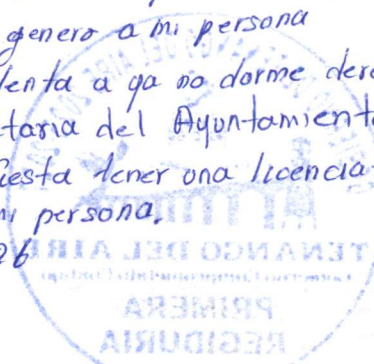 genero a mi persona
lenta a ya no darme dere
taria del Ayuntamiento
fiesta tener una licencia
mi persona.
26
TENANGO DEL AIRE
PRIMERA
REGIDURIA